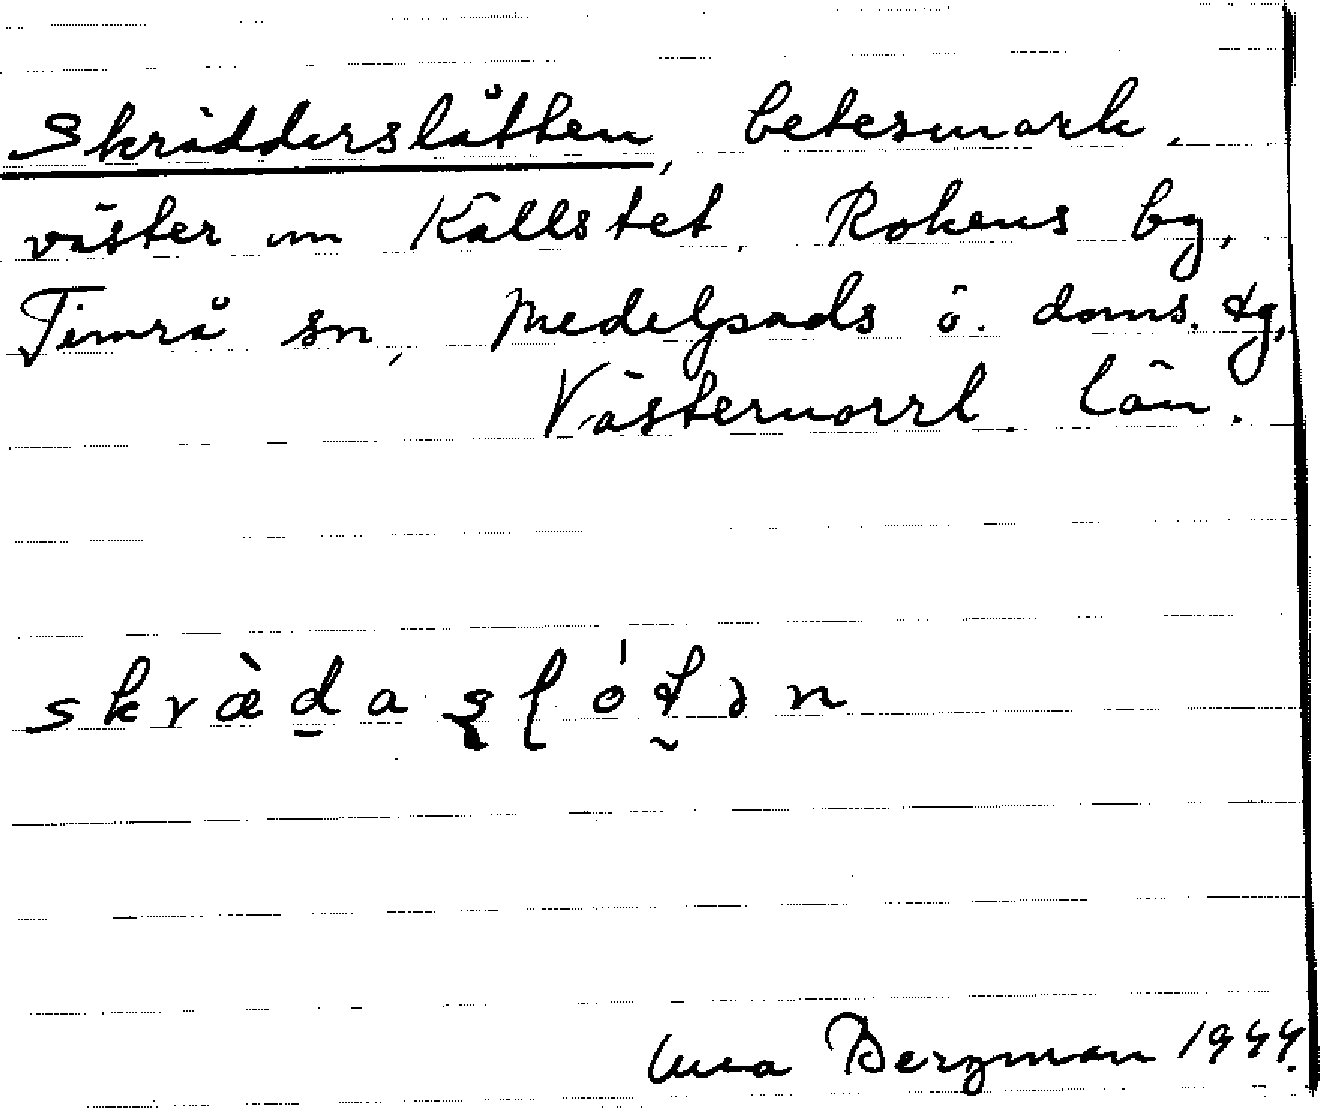 Skrädderslåtten, betesmark
väster om Källstet, Rokens by,
Timrå sn, Medelpads ö. doms. tg,
Västernorrl. län.
skræ̀d̠aʂɭót̰ən
Bergman 1944.